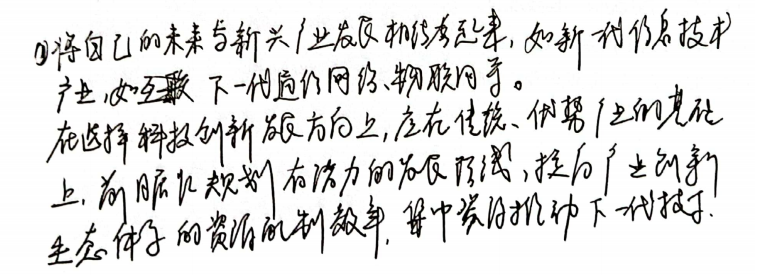 ①将自己的未来与新兴产业发展相结合起来,如新一代信息技术
产业,如互联 下一代通信网络、物联网等。
在选择科技创新发展方向上,应在传统、优势产业的基础
上,前瞻性规划有潜力的发展路线,提高产业创新
生态体系的资源配制效率,集中资源推动下一代技术.